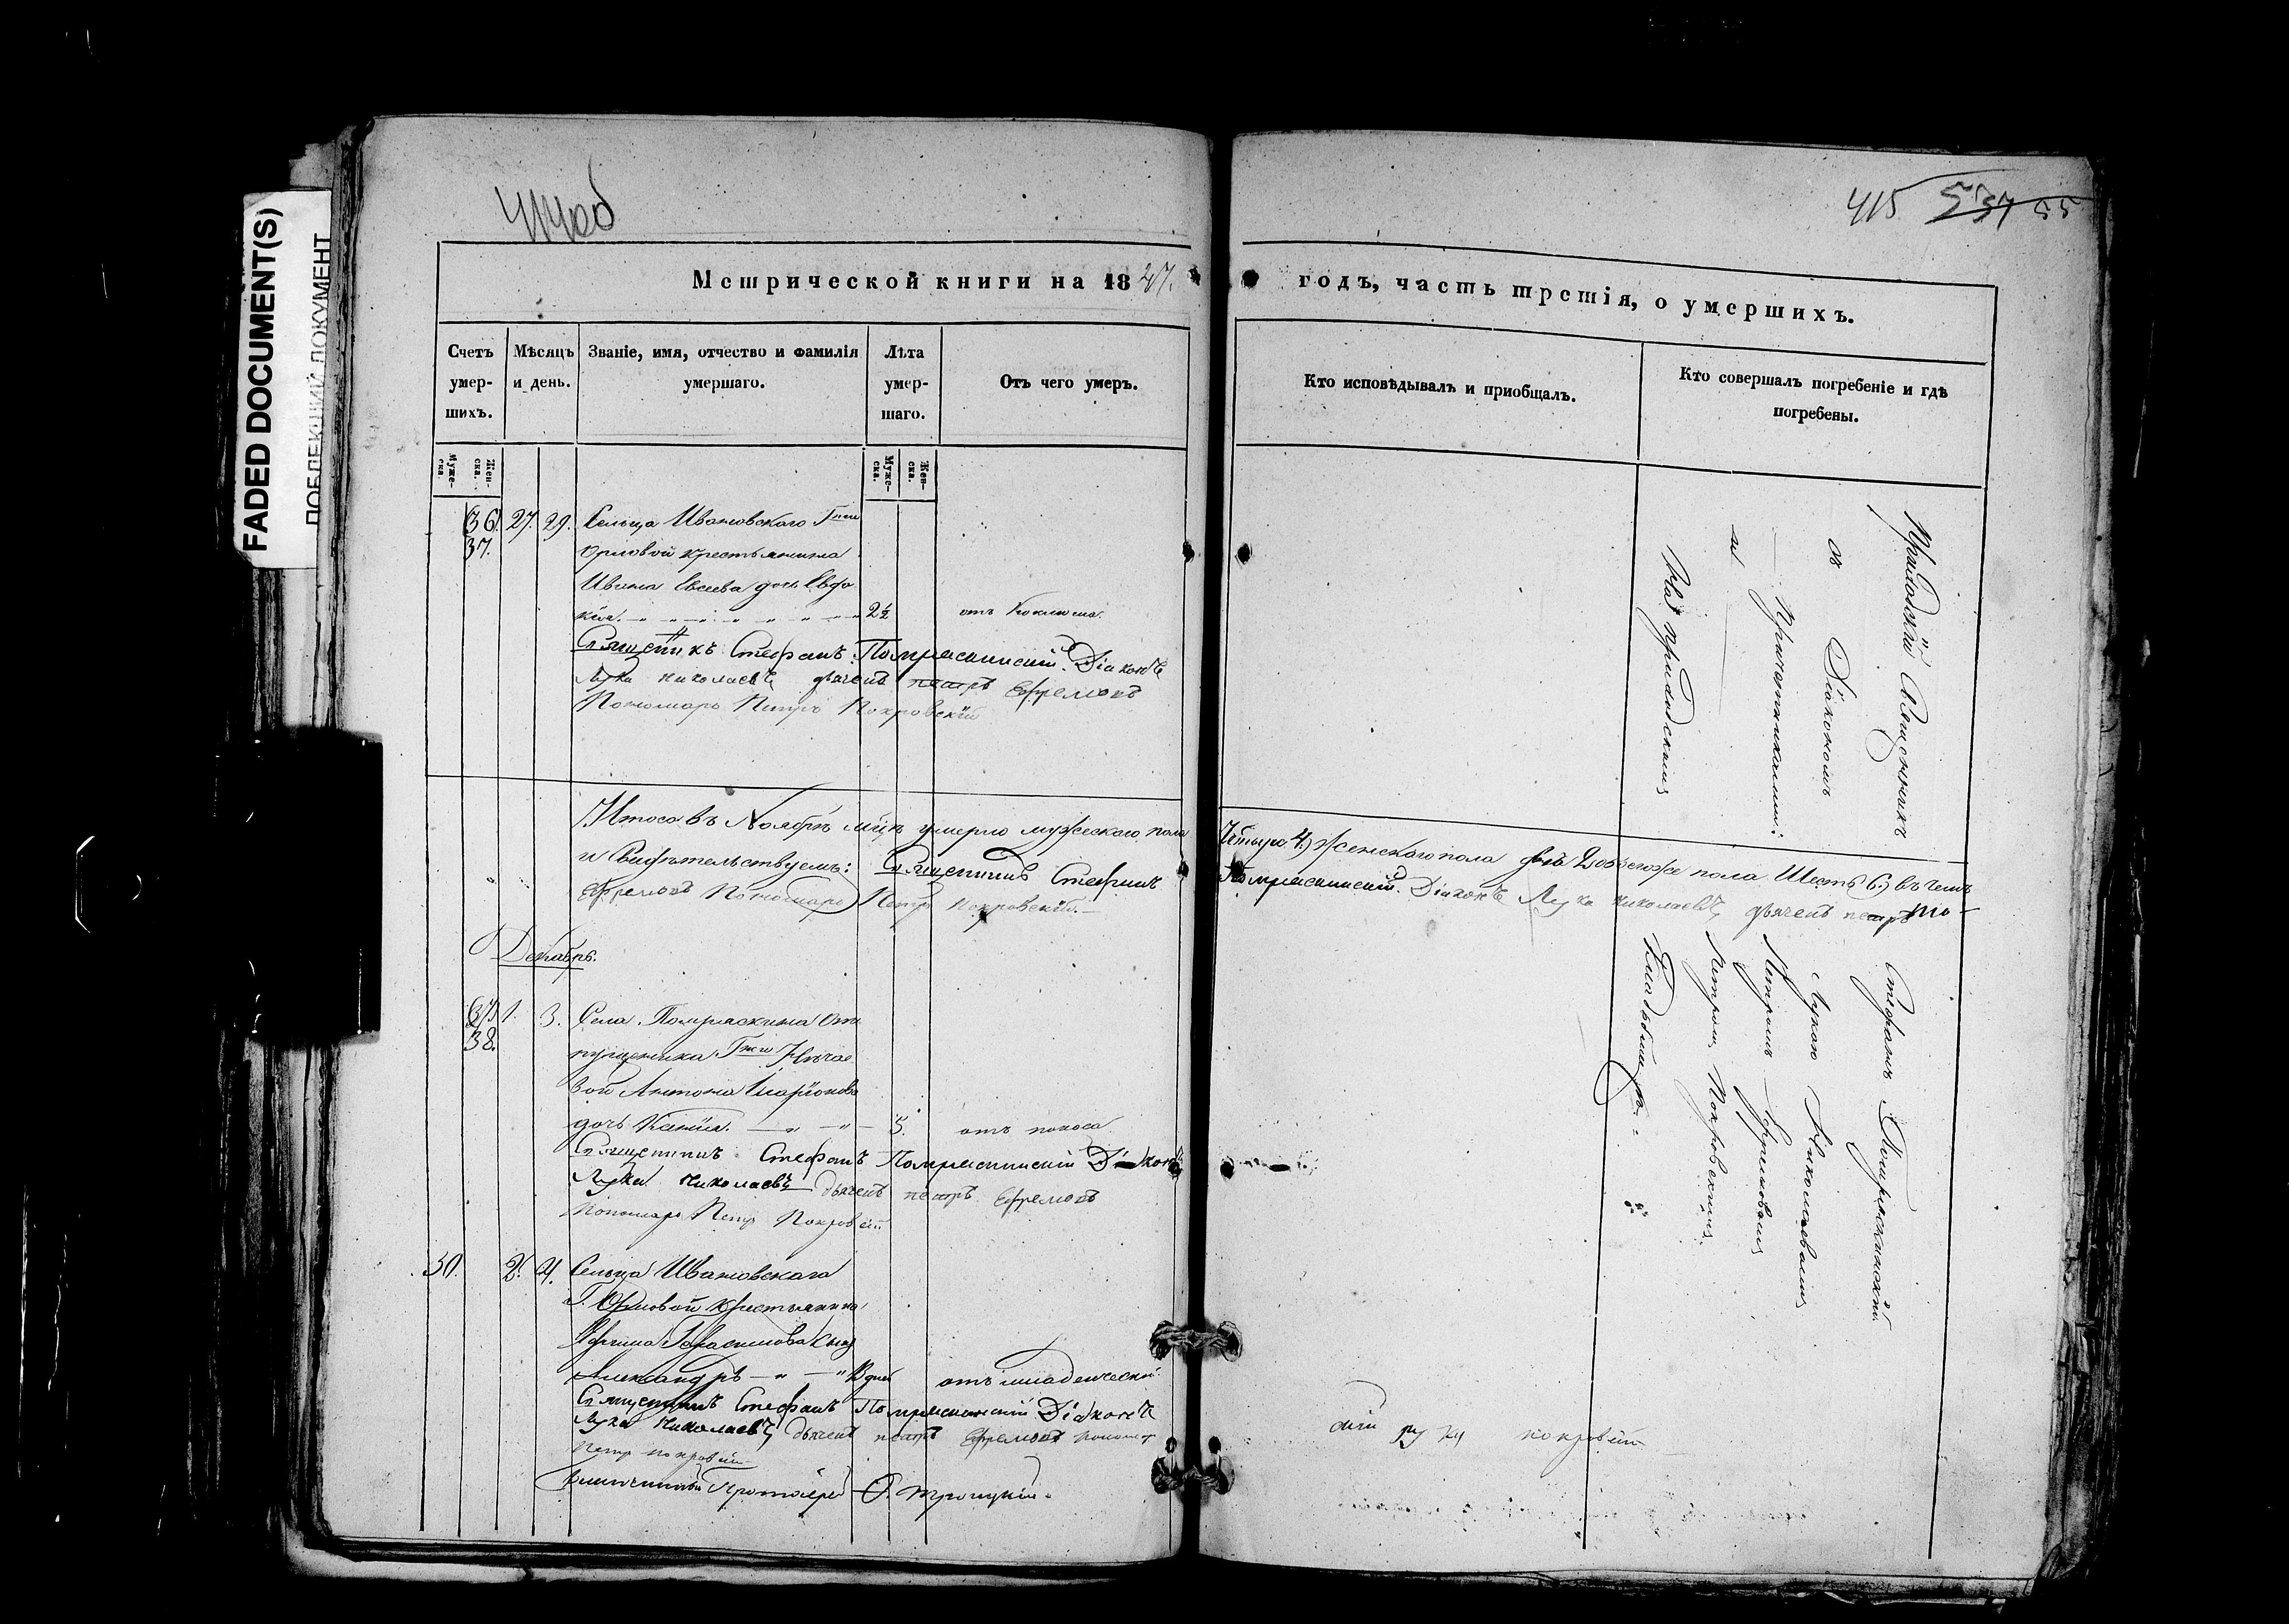 FADED DOCUMENT(S)
ДОКУМЕНТ
414об
415
Метрической книги на 1847. годъ, часть третія, о умершихъ.
Счетъ умер-шихъ.
Мѣсяцъ и день.
Званіе, имя, отчество и фамилія умершаго.
Лѣта умер-шаго.
Отъ чего умеръ.
Кто исповѣдывалъ и приобщалъ.
Кто совершалъ погребеніе и гдѣ погребены.
Муже-ска.
Жен-ска.
Муже-ска.
Жен-ска.
36. 27. 29. Сельца Ивановскаго Гжи
37. Орловой крестьянина
Ивана Евсеева дочь Евдо
кія. 2½ отъ коклюша.
Священникъ Стефанъ Помряскинскій Діаконъ
Лука Николаевъ дьячекъ петръ Ефремовъ
Пономарь Петръ Покровскій
Приходскій Священникъ
съ Діакономъ
и Причетниками:
На приходскомъ
Итого въ Ноябрѣ мцѣ умерло мужескаго пола Четыре 4.) женскаго пола два 2 обоего же пола Шесть 6.) въ чемъ
и Свидѣтельствуемъ: Священникъ Стефанъ Помряскинскій Діаконъ Лука Николаевъ дьячекъ петръ
Ефремовъ Пономарь Петръ Покровскій.
Декабрь.
37. 1. 3. Села Помряскина От
38. пущеника Гжи Нечае
вой Антона Иларіонова
дочь Ксенія. 5. отъ поноса
Священникъ Стефанъ Помряскинскій Діаконъ
Лука Николаевъ дьячекъ петръ Ефремовъ
Пономарь Петръ Покровскій
Стефанъ Помряскинскій
Лукою Николаевымъ
Петромъ Ефремовымъ
Петромъ Покровскимъ.
Кладбищѣ.
30. 2. 4. Сельца Ивановскаго
Г. Орловой крестьянина
Герасимова сынъ
Александръ дней отъ младенческой
Священникъ Стефанъ Помряскинскій Діаконъ
Лука Николаевъ дьячекъ петръ Ефремовъ
Петръ покровскій
руку покровскій
Протоіерей Троицкій.